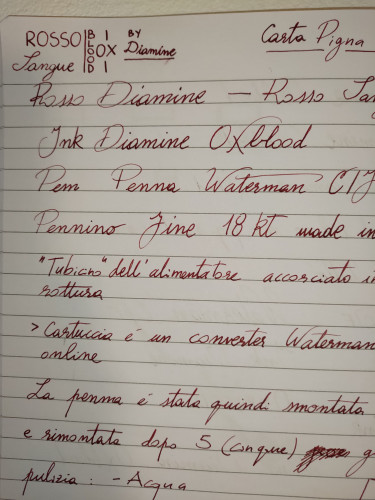 ROSSO BLOOD I OX I BY
Sangue Diamine
Carta Pigna
Rosso Diamine — Rosso San
Ink Diamine Oxblood
Pem Penna Waterman C/F
Pennino Fine 18 kt made in
"Tubicino" dell'alimentatore accorciato
rottura
> Cartuccia é un converter Waterman
online
La penna é stata quindi smontata
e rimontata dopo 5 (cinque) g
pulizia: - Acqua